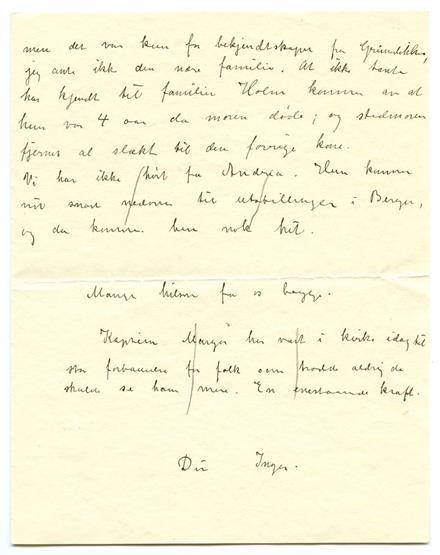 men det var kun for bekjendtskaper fra Grimelikken,
jeg ante ikk den nære familie. At ikke tante
har kjendt til familien Holm kommer av at
hun var 4 aar da moren døde; og stedmoren
fjernet al slækt til den forrige kone.
Vi har ikke hørt fra Andrea. Hun kommer
nu snart nedover til utstillingen i Bergen,
og da kommer hun nok hit.
Mange hilsen fra os begge.
Kaptein har vært i kirke idag til
stor forbauselse for folk som trodde aldrig de
skulde se ham mere. En enestaaende kraft.
Din Inger.